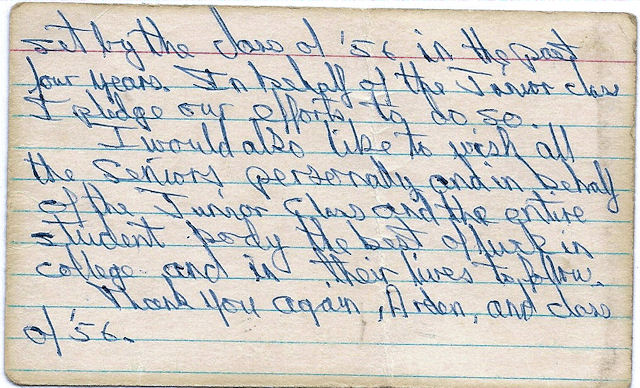 set by the class of '56 in the past
four years. In behalf of the Junior class
I pledge our efforts to do so.
I would also like to wish all
the Seniors personally and in behalf
of the Junior Class and the entire
student body the best of luck in
college and in their lives to follow.
Thank you again, Arden, and class
of '56.